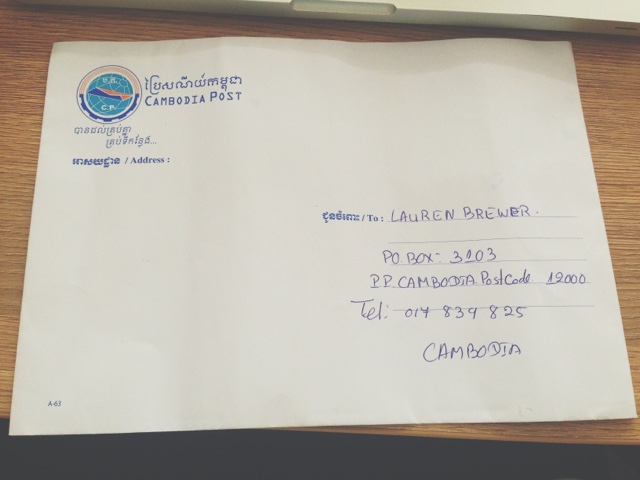 ប្រៃសណីយ៍កម្ពុជា
CAMBODIA POST
C.P.
បានដល់គ្រប់គ្នា
គ្រប់ទីកន្លែង...
អាសយដ្ឋាន / Address :
ជូនចំពោះ / To : LAUREN BREWER.
P.O. BOX: 3103
P.P. CAMBODIA PostCode 12000
Tel: 017 834 825
CAMBODIA
A-63